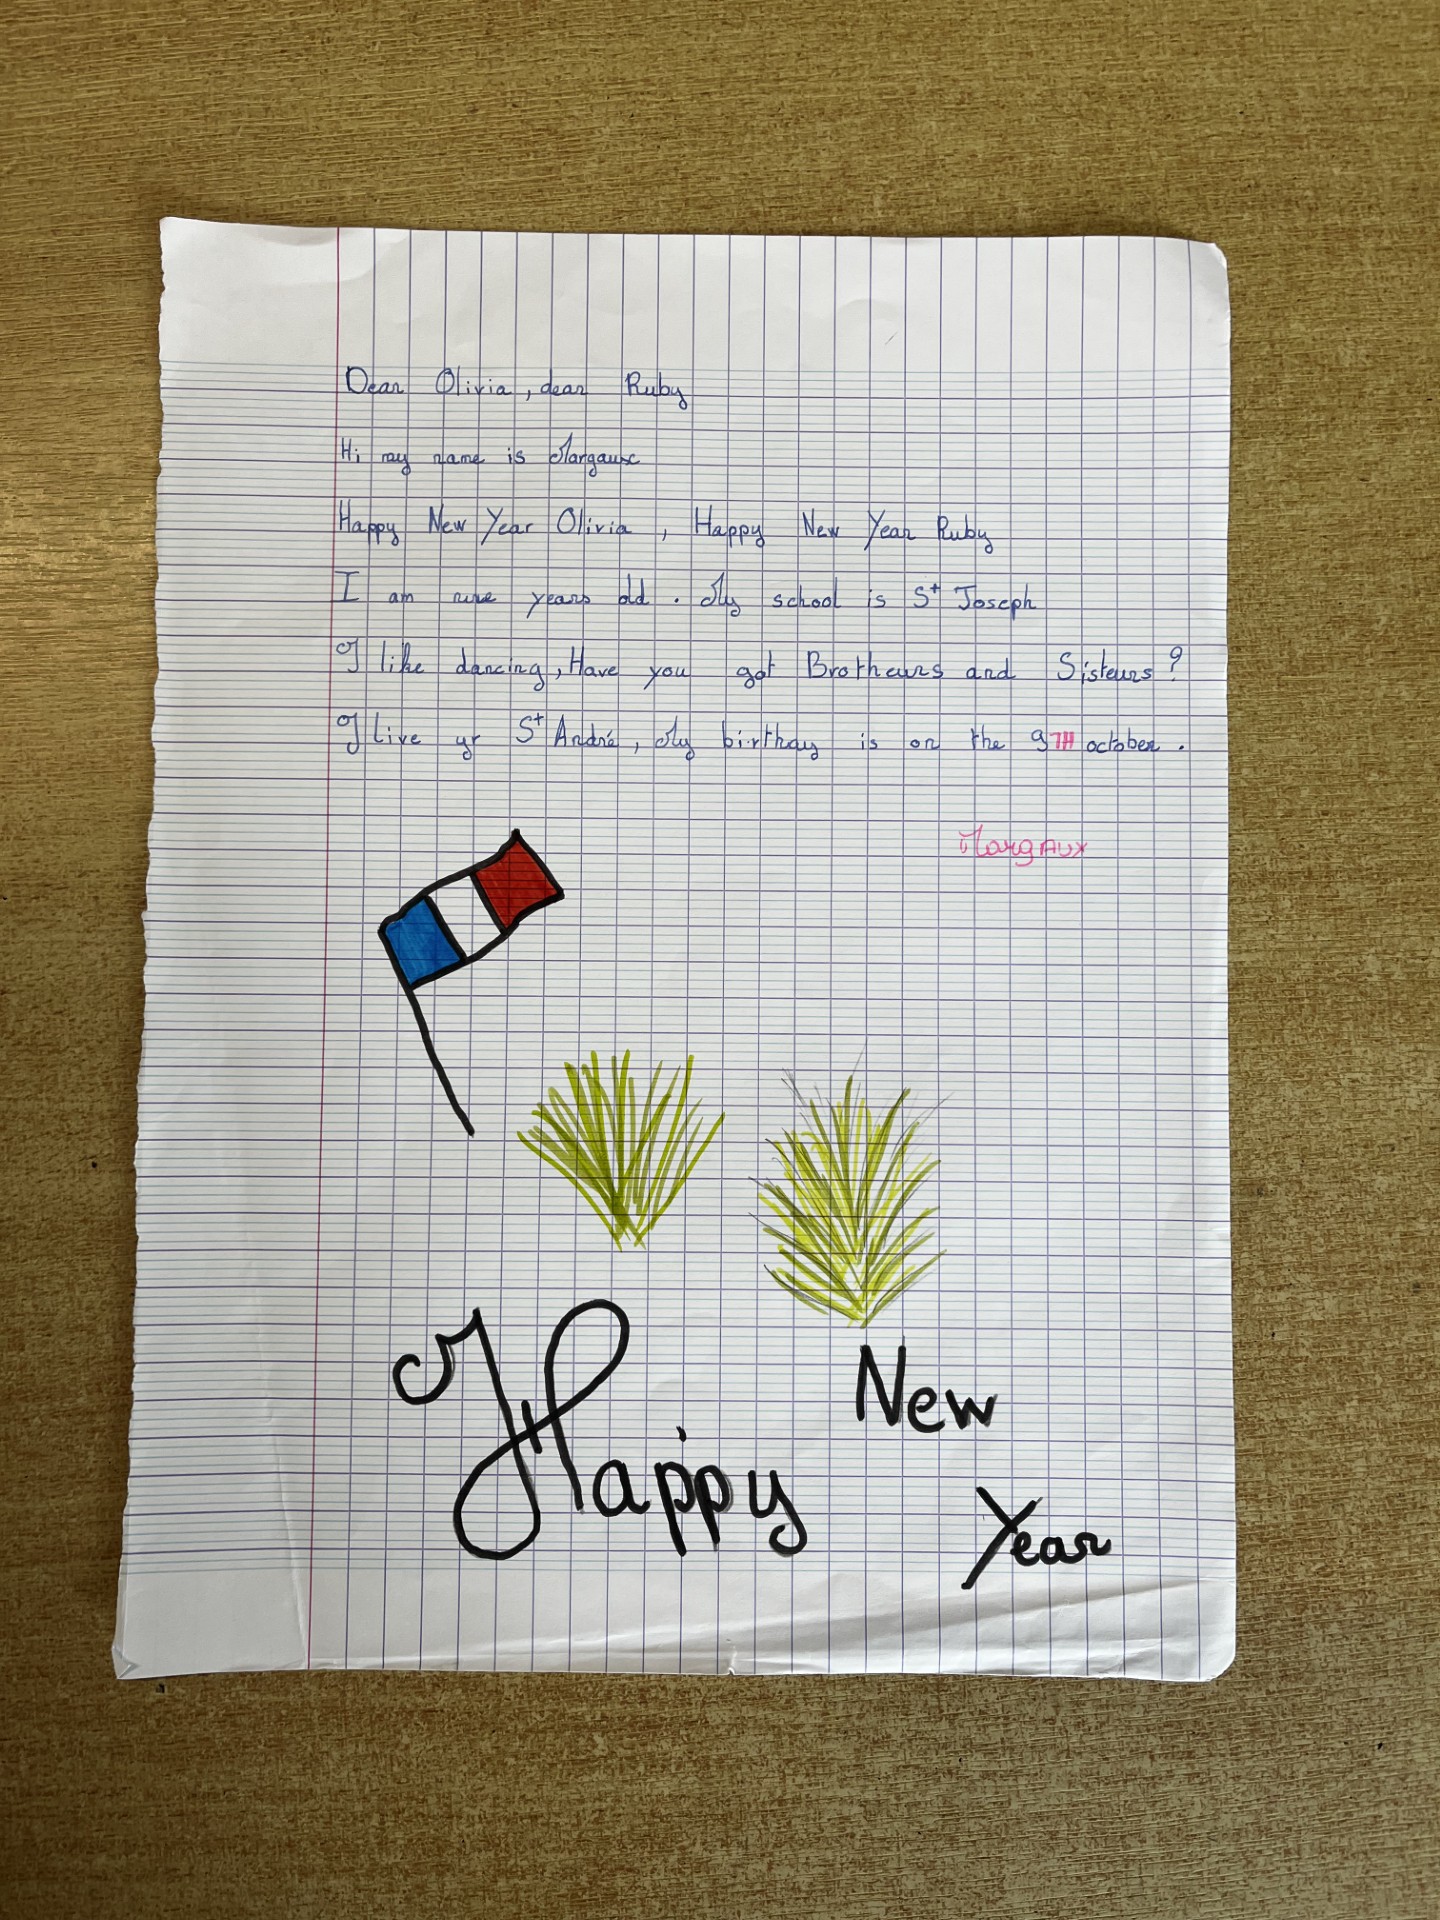 Dear Olivia, dear Ruby
Hi my name is Margaux
Happy New Year Olivia, Happy New Year Ruby
I am nine years old. My school is St Joseph
I like dancing, Have you got Brotheurs and Sisteurs?
I live St André, My birthay is on the 9TH october.
MargAux
Happy
New
Year